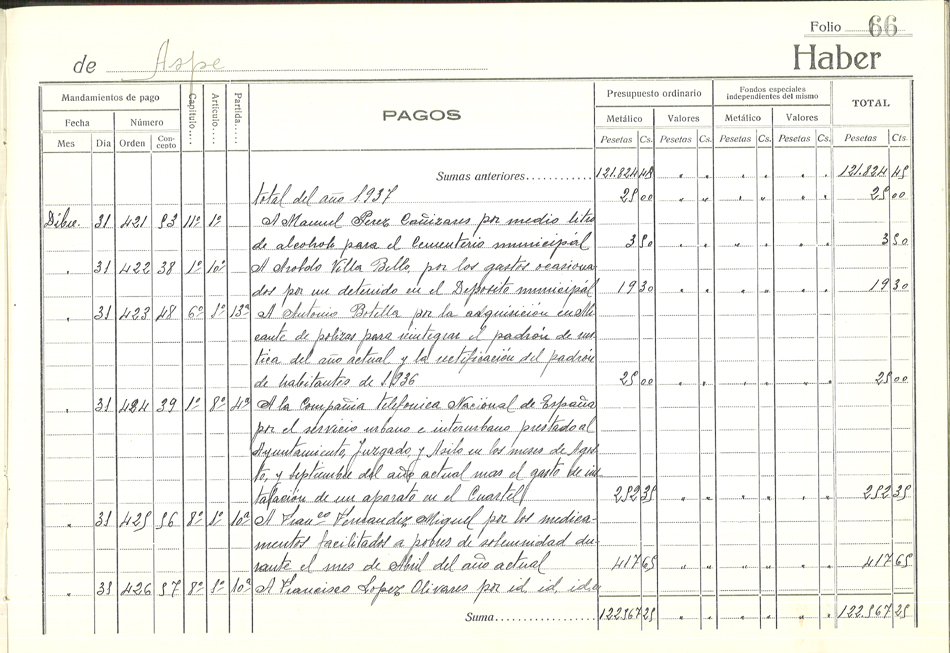 Folio 66
de Aspe Haber
Mandamientos de pago Capítulo.... Artículo.... Partida.... PAGOS Presupuesto ordinario Fondos especiales independientes del mismo TOTAL
Fecha Número Metálico Valores Metálico Valores
Mes Día Orden Concepto Pesetas Cs. Pesetas Cs. Pesetas Cs. Pesetas Cs. Pesetas Cts.
Sumas anteriores............ 121.824 45 " " " " " " 121.824 45
total del año 1937 25 00 " " " " " " 25 00
Dibre. 31 421 53 11º 1º A Manuel Perez Cañizares por medio litro
de alcohol para el Cementerio municipal 3 50 " " " " " " 3 50
" 31 422 38 1º 10º A Aroldo Villa Bello, por los gastos ocasiona-
dos por un detenido en el Deposito municipal 19 30 " " " " " " 19 30
" 31 423 48 6º 1º 13ª A Antonio Botella por la adquisición en Ali-
cante de polizas para reintegrar el padrón de rus-
tica del año actual y la rectificación del padrón
de habitantes de 1.936 25 00 " " " " " " 25 00
" 31 424 39 1º 8º 4ª A la Compañia telefonica Nacional de España
por el servicio urbano e interurbano prestado al
Ayuntamiento, Juzgado y Asilo en los meses de Agos-
to, y septiembre del año actual mas el gasto de ins-
talación de un aparato en el Cuartel 252 35 " " " " " " 252 35
" 31 425 56 8º 1º 10ª A Franco Fernandez Miguel por los medica-
mentos facilitados a pobres de solemnidad du-
rante el mes de Abril del año actual 417 65 " " " " " " 417 65
" 31 426 57 8º 1º 10ª A Francisco Lopez Olivares por id, id, id,
Suma..................... 122.567 25 " " " " " " 122.567 25